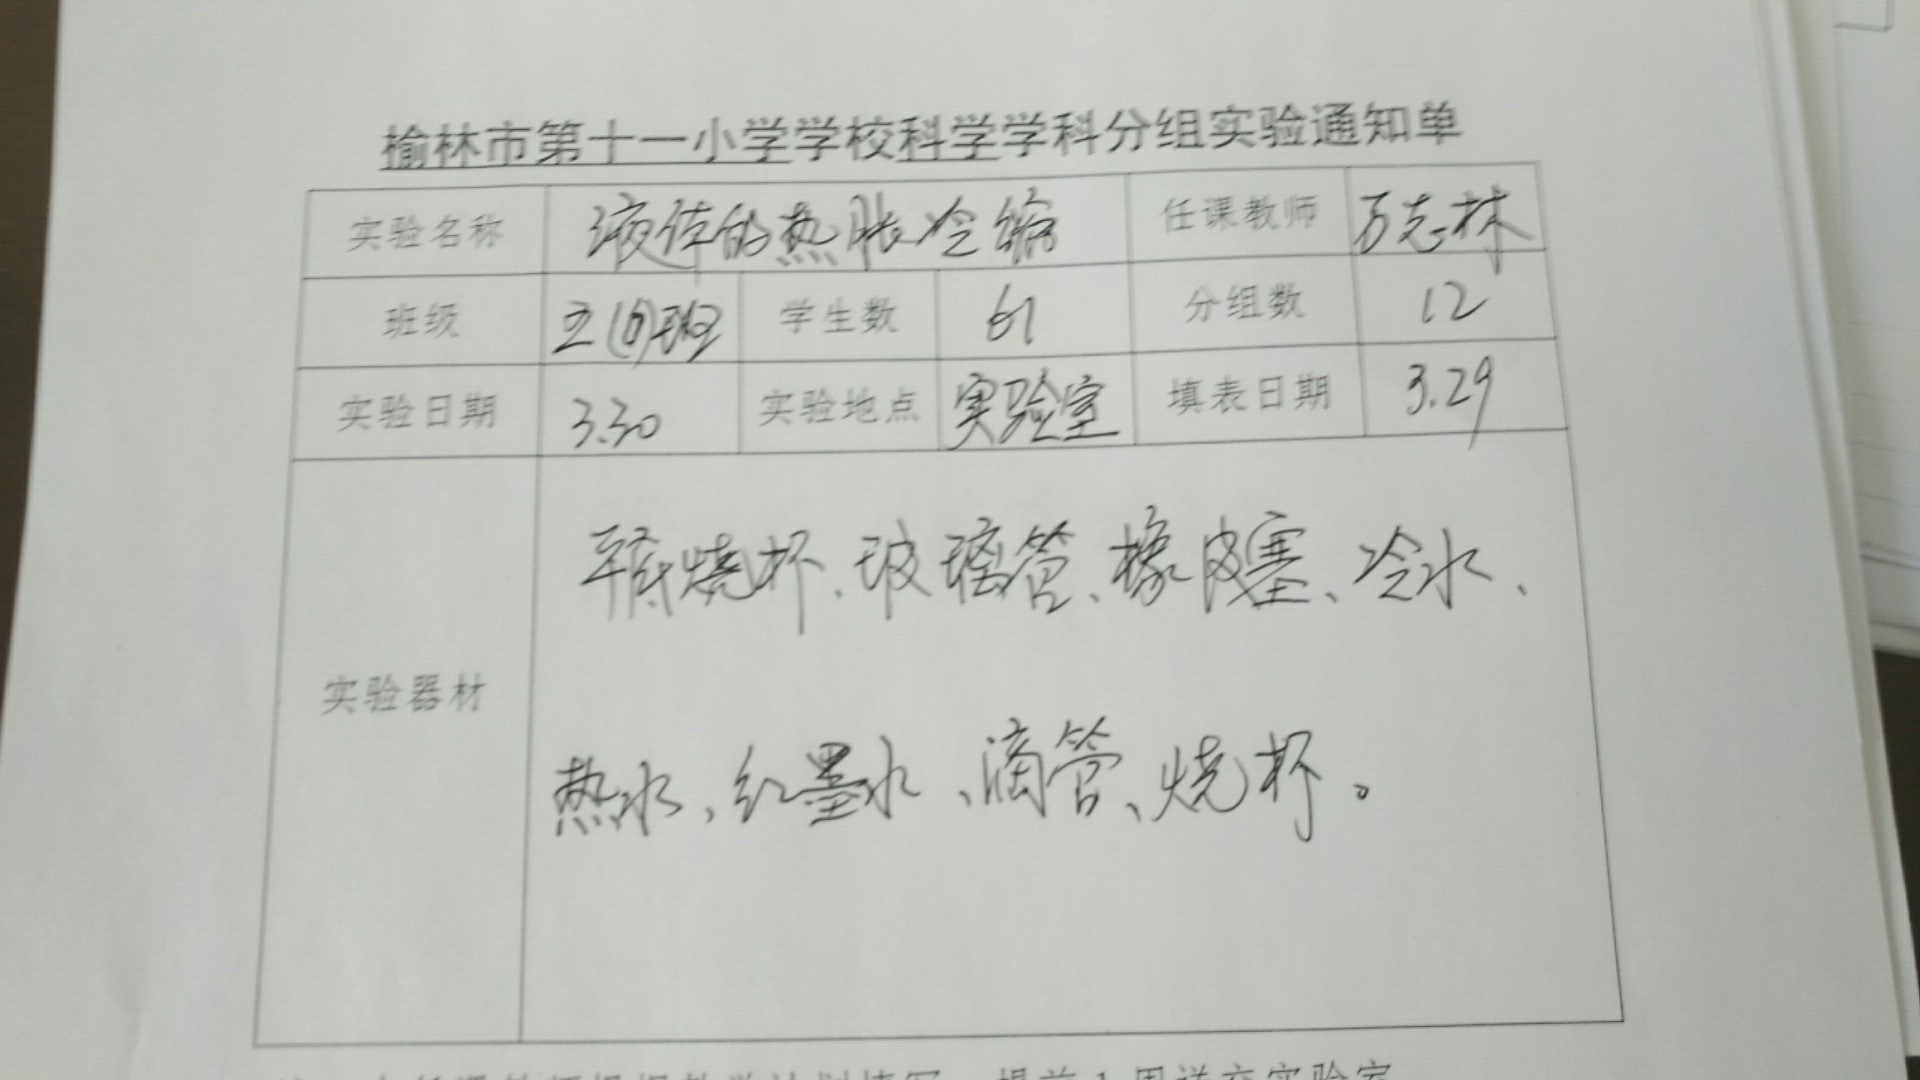 榆林市第十一小学学校科学学科分组实验通知单
实验名称 液体的热胀冷缩 任课教师 万志林
班级 五(6)班 学生数 61 分组数 12
实验日期 3.30 实验地点 实验室 填表日期 3.29
平底烧杯、玻璃管、橡皮塞、冷水、
实验器材
热水、红墨水、滴管、烧杯。
提前1周送交实验室